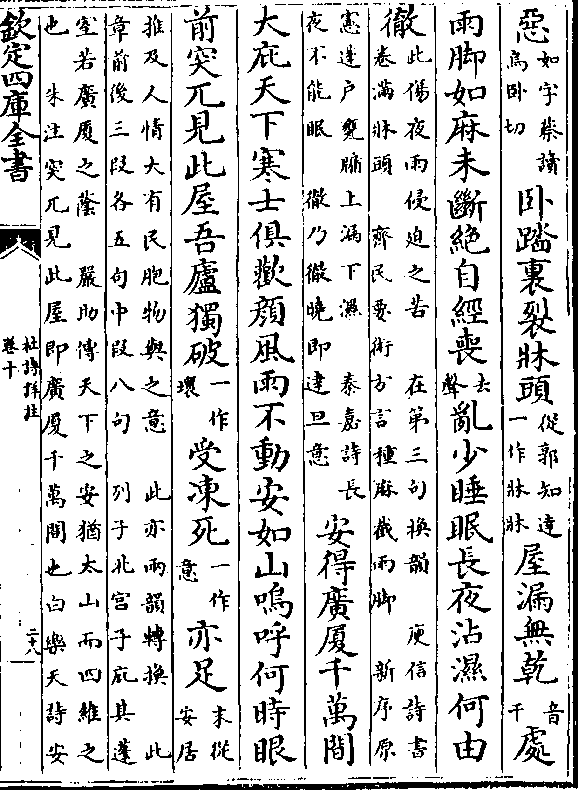 惡如字蔡讀烏卧切卧踏裏裂牀頭從郭知達一作牀牀屋漏無乾音干處
雨脚如麻未斷絶自經喪去聲亂少睡眠長夜沾濕何由
徹此傷夜雨侵迫之苦 在第三句換韻 庾信詩書卷滿牀頭 齊民要術方言種麻截雨脚 新序原
憲蓬户甕牖上漏下濕 秦嘉詩長夜不能眠 徹乃徹曉即達旦意安得廣厦千萬間
大庇天下寒士俱歡顔風雨不動安如山嗚呼何時眼
前突兀見此屋吾廬獨破一作環受凍死一作意亦足末從安居
推及人情大有民胞物與之意 此亦兩韻轉換 此
章前後三段各五句中段八句 列子北宫子庇其蓬
室若廣厦之蔭 嚴助傳天下之安猶太山而四維之
也 朱注突兀見此屋即廣厦千萬間也白樂天詩安
欽定四庫全書
杜詩詳註
卷十
二十八